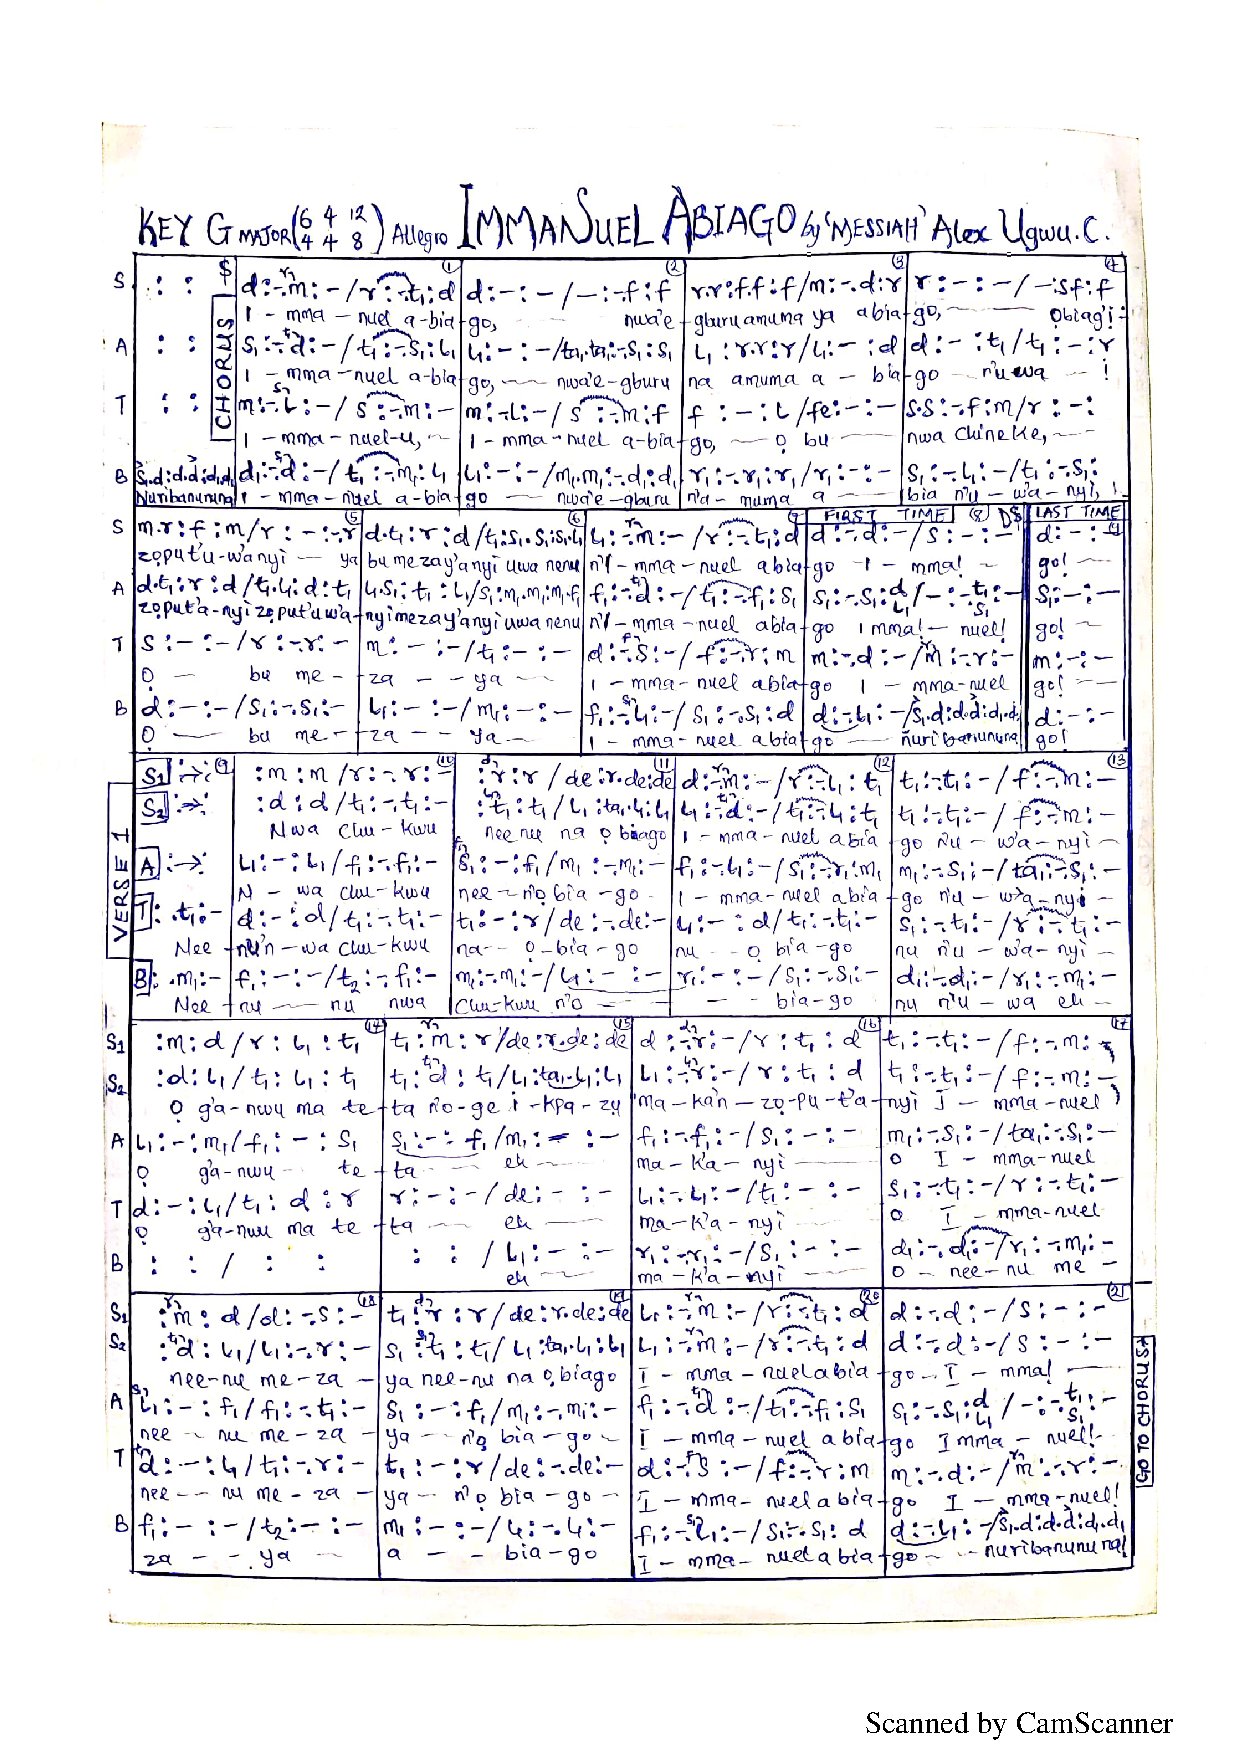 KEY G MAJOR (6/4 4/4 12/8) Allegro IMMANUEL ABIAGO by 'MESSIAH' Alex Ugwu. C.
CHORUS
S d:-.m:-/r:-.t₁:d d:-:-/-:-.f:f r.r:f.f:f/m:-.d:r r:-:-/-:sf:f
I - mma - nuel a-bia-go, nwa'e - gburu amuma ya abia-go, Obiagi-
A S₁:-.d:-/t₁:-.S₁:L₁ L₁:-:-/ta₁.ta₁:-.S₁:S₁ L₁:r.r:r/L₁:-:d d:-:t₁/t₁:-:r
I - mma - nuel a-bia-go, nwa'e-gburu na amuma a - bia-go n'uwa - !
T m:-.L:-/S:-.m:- m:-.L:-/S:-.m:f f:-:L/fe:-:- S.S:-.f:m/r:-:
I - mma - nuel-u, I - mma - nuel a-bia-go, ọ bu nwa Chineke,
B S₁.d:d.d:d₁.d₁ d₁:-.d:-/t₁:-.m₁:L₁ L₁:-:-/m₁.m₁:-.d₁:d₁ r₁:-.r₁:r₁/r₁:-:- S₁:-.L₁:-/t₁:-.S₁:
Nuribanununa I - mma - nuel a-bia-go nwa'e-gburu n'a-muma a bia n'u-wa-nyi, !
FIRST TIME D$ LAST TIME
S m.r:f:m/r:-:-.r d.t₁:r:d/t₁:S₁.S₁:S₁.L₁ L₁:-.m:-/r:-.t₁:d d:-.d:-/S:-:- d:-:-
zoput'u-wa nyi ya bu mezay'anyi uwa nenu n'I-mma-nuel abia-go -I-mma! go!
A d.t₁:r:d/t₁.L₁:d:t₁ L₁.S₁:t₁:L₁/S₁:m₁.m₁:m₁.f₁ f₁:-.d:-/t₁:-.f₁:S₁ S₁:-.S₁:d/-:-:t₁:- S₁:-:-
zoput'a-nyi zoput'u wa-nyi mezay'anyi uwa nenu n'I-mma-nuel abia-go I mma!- nuel! go!
T S:-:-/r:-.r:- m:-:-/t₁:-:- d:-.S:-/f:-.r:m m:-.d:-/m:-.r:- m:-:-
Ọ bu me - za - - ya I - mma-nuel abia-go I - mma-nuel go!
B d:-:-/S₁:-.S₁:- L₁:-:-/m₁:-:- f₁:-.L₁:-/S₁:-.S₁:d d:-.L₁:-/S₁.d:d.d:d₁.d₁ d:-:-
Ọ bu me - za - - ya I - mma-nuel abia-go nuribanununa go!
VERSE 1
S1 :m:m/r:-.r:- :r:r/de:r.de:de d:-.m:-/r:-.L₁:t₁ t₁:-.t₁:-/f:-.m:-
S2 :d:d/t₁:-.t₁:- :t₁:t₁/L₁:ta₁.L₁:L₁ L₁:-.d:-/t₁:-.L₁:t₁ t₁:-.t₁:-/f:-.m:-
Nwa Chu-kwu nee nu na ọ biago I - mma-nuel abia-go n'u-wa-nyi
A L₁:-:L₁/f₁:-.f₁:- S₁:-:f₁/m₁:-.m₁:- f₁:-.L₁:-/S₁:-.r₁:m₁ m₁:-.S₁:-/ta₁:-.S₁:-
N - wa Chu-kwu nee - n'ọ bia-go I - mma-nuel abia-go n'u-wa-nyi
T :.t₁:- d:-:d/t₁:-.t₁:- t₁:-:r/de:-.de:- L₁:-:d/t₁:-.t₁:- S₁:-.t₁:-/r:-.t₁:-
Nee-nu'n-wa Chu-kwu na-- ọ-bia-go nu - ọ bia-go nu n'u-wa-nyi
B :.m₁:- f₁:-:-/t₂:-.f₁:- m₁:-.m₁:-/L₁:-:- r₁:-:-/S₁:-.S₁:- d₁:-.d₁:-/r₁:-.m₁:-
Nee-nu nu nwa Chu-kwu n'ọ - - bia-go nu n'u-wa eh
S1 :m:d/r:L₁:t₁ t₁:m:r/de:r.de:de d:-.r:-/r:t₁:d t₁:-.t₁:-/f:-.m:-
S2 :d:L₁/t₁:L₁:t₁ t₁:d:t₁/L₁:ta₁.L₁:L₁ L₁:-.r:-/r:t₁:d t₁:-.t₁:-/f:-.m:-
Ọ g'a-nwu ma te-ta n'o-ge i-kpa-zu ma-ka'n-zo-pu-t'a-nyi I - mma-nuel
A L₁:-:m₁/f₁:-:S₁ S₁:-:f₁/m₁:-:- f₁:-.f₁:-/S₁:-:- m₁:-.S₁:-/ta₁:-.S₁:-
Ọ g'a-nwu te-ta eh ma-k'a-nyi O I - mma-nuel
T d:-:L₁/t₁:d:r r:-:-/de:-:- L₁:-.L₁:-/t₁:-:- S₁:-.t₁:-/r:-.t₁:-
Ọ g'a-nwu ma te-ta eh ma-k'a-nyi O I - mma-nuel
B : : / : : : : / L₁:-:- r₁:-.r₁:-/S₁:-:- d₁:-.d₁:-/r₁:-.m₁:-
eh ma-k'a-nyi O - nee-nu me -
S1 :m:d/d:-.S:- t₁:r:r/de:r.de:de L₁:-.m:-/r:-.t₁:d d:-.d:-/S:-:-
S2 :d:L₁/L₁:-.r:- S₁:t₁:t₁/L₁:ta₁.L₁:L₁ L₁:-.m:-/r:-.t₁:d d:-.d:-/S:-:-
nee-nu me-za - ya nee-nu na ọ biago I - mma-nuel abia-go - I - mma!
A L₁:-:f₁/f₁:-.t₁:- S₁:-:f₁/m₁:-.m₁:- f₁:-.d:-/t₁:-.f₁:S₁ S₁:-.S₁:d/-:-:t₁:-
nee - nu me-za - ya - n'ọ bia-go I - mma-nuel abia-go I mma - nuel!
T d:-:L₁/t₁:-.r:- t₁:-:r/de:-.de:- d:-.S:-/f:-.r:m m:-.d:-/m:-.r:-
nee - nu me-za - ya - n'ọ bia-go I - mma-nuel abia-go I - mma-nuel!
B f₁:-:-/t₂:-:- m₁:-:-/L₁:-.L₁:- f₁:-.L₁:-/S₁:-.S₁:d d:-.L₁:-/S₁.d:d.d:d₁.d₁
za - - ya a - - bia-go I - mma-nuel abia-go - nuribanununa!
GO TO CHORUS
Scanned by CamScanner